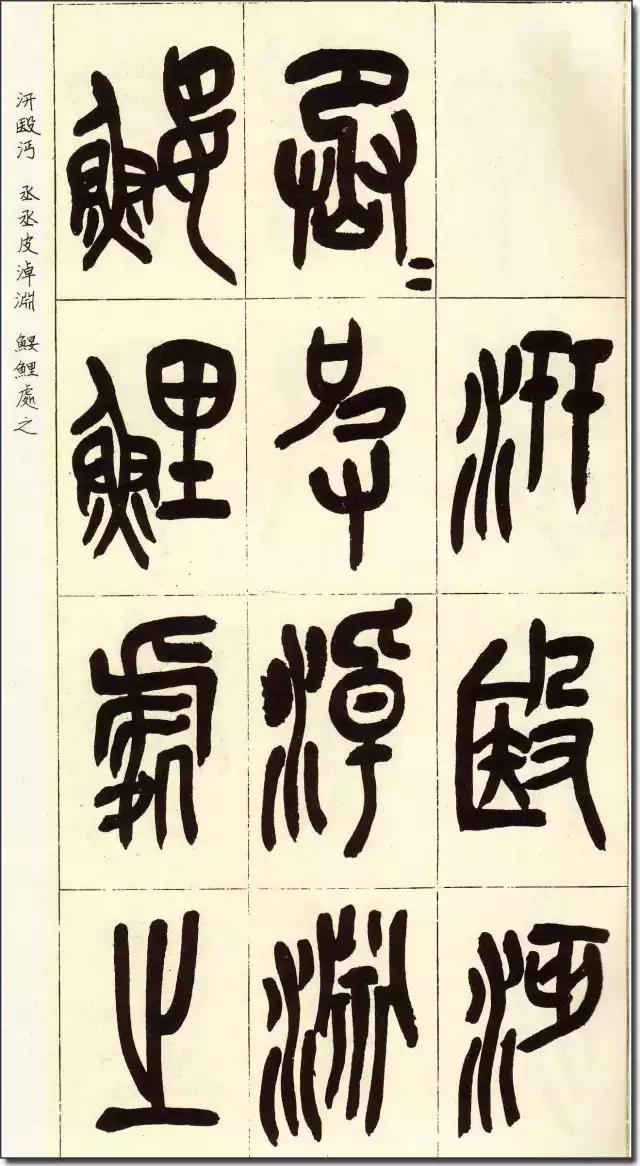 汧殹沔
丞〓皮淖淵
鰋鯉處之
汧殹沔 丞丞皮淖淵 鰋鯉處之